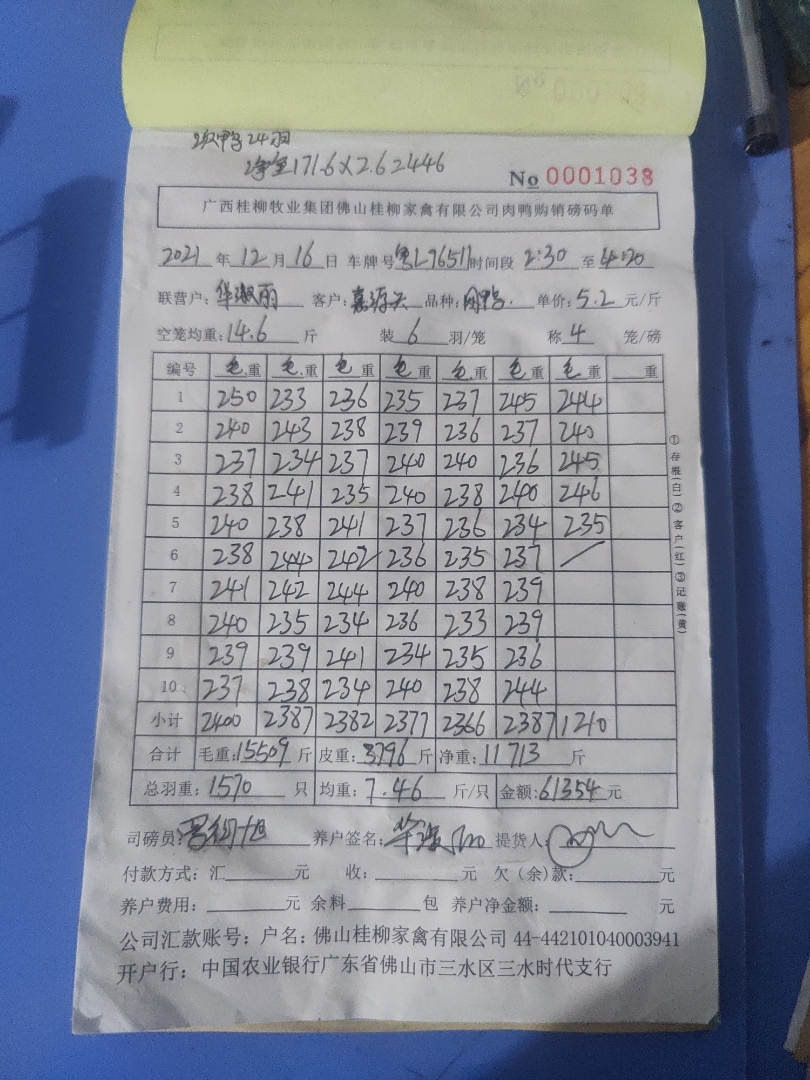 2级鸭24羽
净重171.6×2.6 2446
No 0001038
广西桂柳牧业集团佛山桂柳家禽有限公司肉鸭购销磅码单
2021 年 12 月 16 日 车牌号 粤L76517 时间段 2:30 至 4:20
联营户: 华淑丽 客户: 嘉源兴 品种: 肉鸭. 单价: 5.2 元/斤
空笼均重: 14.6 斤 装 6 羽/笼 称 4 笼/磅
编号 毛重 毛重 毛重 毛重 毛重 毛重 毛重 重
1 250 233 236 235 237 245 244
2 240 243 238 239 236 237 240
3 237 234 237 240 240 236 245
4 238 241 235 240 238 240 246
5 240 238 241 237 236 234 235
6 238 244 242 236 235 237 /
7 241 242 244 240 238 239
8 240 235 234 236 233 239
9 239 239 241 234 235 236
10 237 238 234 240 238 244
小计 2400 2387 2382 2377 2366 2387 1210
合计 毛重: 15509 斤 皮重: 3796 斤 净重: 11713 斤
总羽重: 1570 只 均重: 7.46 斤/只 金额: 61354 元
司磅员: 养户签名: 提货人:
付款方式: 汇 元 收: 元 欠(余)款: 元
养户费用: 元 余料 包 养户净金额: 元
公司汇款账号: 户名: 佛山桂柳家禽有限公司 44-442101040003941
开户行: 中国农业银行广东省佛山市三水区三水时代支行
①存根(白)②客户(红)③记账(黄)